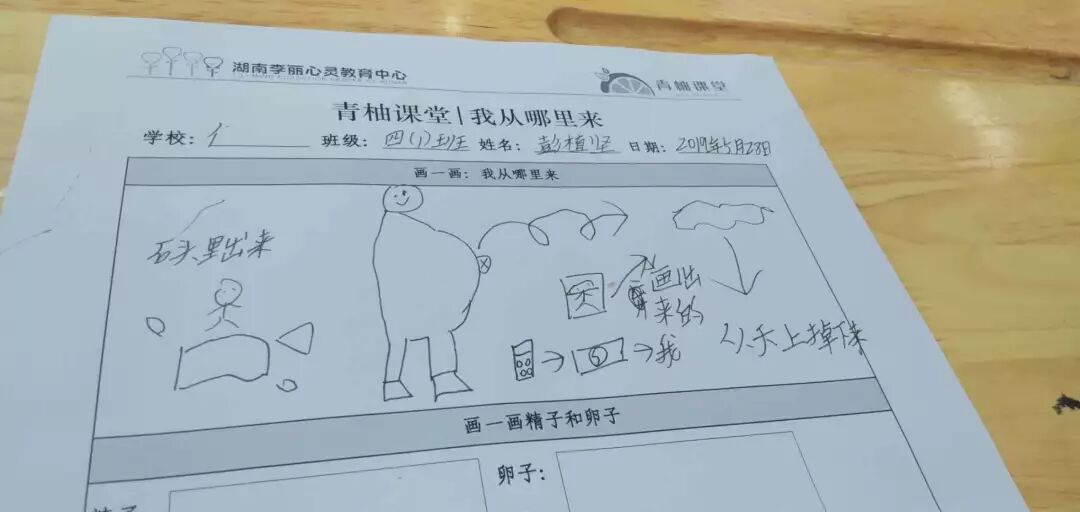 湖南李丽心灵教育中心
青柚课堂
青柚课堂|我从哪里来
学校:
班级: 四(1)班 姓名: 彭植坚 日期: 2019年5月28日
画一画: 我从哪里来
石头里出来
画出
来的
我
从天上掉下来
画一画精子和卵子
卵子: